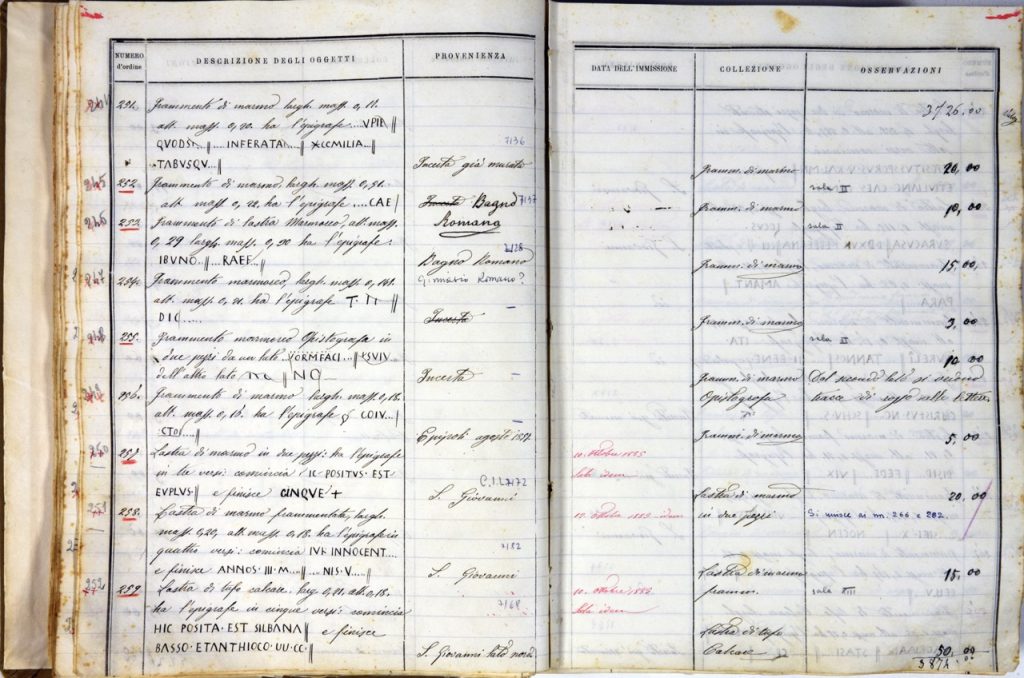 NUMERO d'ordine
DESCRIZIONE DEGLI OGGETTI
PROVENIENZA
DATA DELL'IMMISSIONE
COLLEZIONE
OSSERVAZIONI
3726,00
251. Frammento di marmo largh. mass. 0,11.
alt. mass. 0,20. ha l'epigrafe .....VPIE||
QUODSI....||....INFERATA||
TABUSQU...||
7136
Incerta già murato
Framm. di marmo
20,00
245
252. Frammento di marmo, largh. mass.
alt. mass. 0,22. ha l'epigrafe.....CAE||
Incerta Bagno 7137
Romano
Framm. di marmo
sala II
10,00
246
253. Frammento di lastra marmorea, alt. mass.
0,29 largh. mass. 0,20 ha l'epigrafe:
IBVNO..||..RAEF..||
7128
Bagno Romano
Ginnasio Romano?
Framm. di marmo
sala II
15,00.
247
254. Frammento marmoreo, largh. mass.
alt. mass. 0,21. ha l'epigrafe T. TI
DIC.....
Incerta
Framm. di marmo
3,00
255. Frammento marmoreo Opistografo in
due pezzi da un lato VORMFACI...||
dell'altro lato
Incerta
Framm. di marmo
Opistografo
sala II
10,00
Dal secondo lato si vedono
tracce di rosso nelle lettere
256. Frammento di marmo largh. mass. 0,18.
alt. mass. 0,16. ha l'epigrafe COIV...
STOI...||
Epipoli agosto
Framm. di marmo
5,00
257. Lastra di marmo in due pezzi: ha l'epigrafe
in tre versi: comincia HIC POSITVS·EST
EVPLVS|| e finisce CINQVE +
C.I.L 7172
S. Giovanni
10. Ottobre 1885
Lastra di marmo
in due pezzi
20,00
Si unisce ai nn. 266 e 282.
258. Lastra di marmo frammentata, largh.
mass. 0,20, alt. mass. 0,18. ha l'epigrafe in
quattro versi: comincia IVK INNOCENT....
e finisce ANNOS·III·M......NIS·V.....||
7182
S. Giovanni
12. Ottobre 1885 idem
Lastra di marmo
framm.
sala XIII
15,00
252
259. Lastra di tufo calcare, larg. 0,21, alt. 0,18.
ha l'epigrafe in cinque versi: comincia
HIC POSITA·EST SILBANA|| e finisce
BASSO·ETANTHIOCO·UU·CC·||
7168
S. Giovanni lato nord
Lastra di tufo
Calcare
50,00